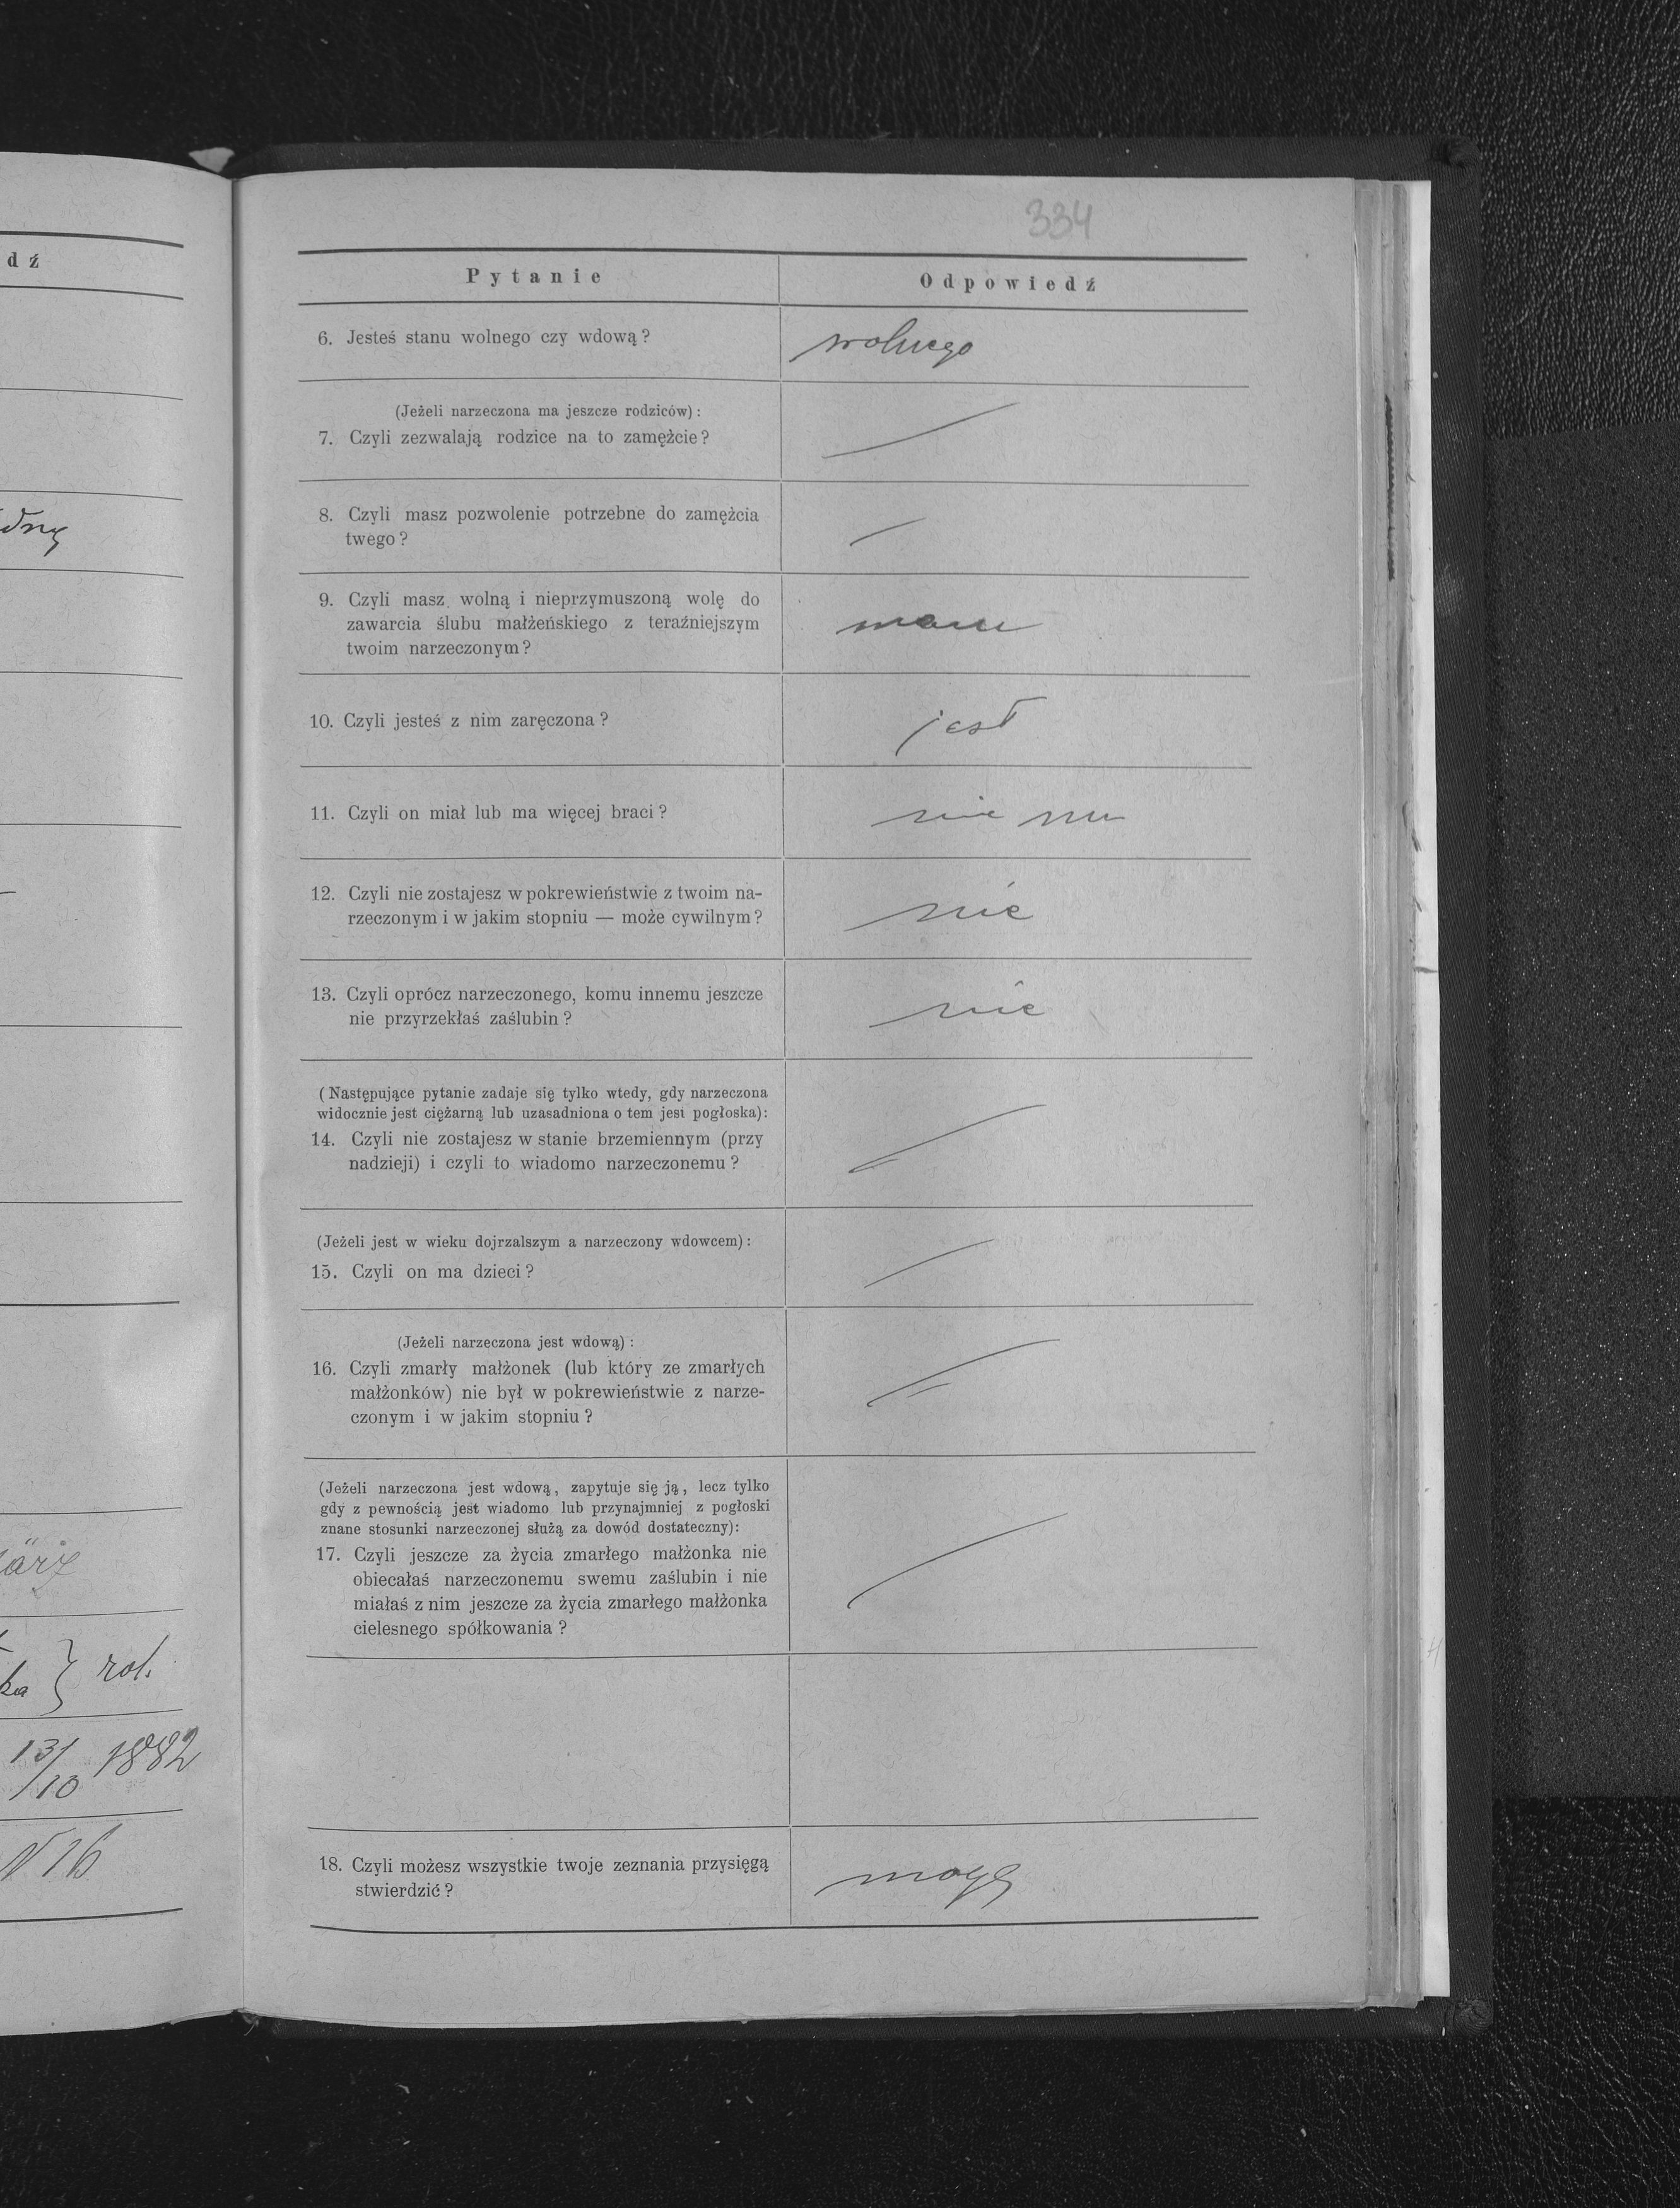 334
dź
dny
ärz
ka } rol.
13/10 1882
N 16
Pytanie Odpowiedź
6. Jesteś stanu wolnego czy wdową? wolnego
(Jeżeli narzeczona ma jeszcze rodziców):
7. Czyli zezwalają rodzice na to zamężcie?
8. Czyli masz pozwolenie potrzebne do zamężcia
twego?
9. Czyli masz wolną i nieprzymuszoną wolę do
zawarcia ślubu małżeńskiego z teraźniejszym mam
twoim narzeczonym?
10. Czyli jesteś z nim zaręczona? jest
11. Czyli on miał lub ma więcej braci? nie ma
12. Czyli nie zostajesz w pokrewieństwie z twoim na-
rzeczonym i w jakim stopniu — może cywilnym? nie
13. Czyli oprócz narzeczonego, komu innemu jeszcze
nie przyrzekłaś zaślubin? nie
(Następujące pytanie zadaje się tylko wtedy, gdy narzeczona
widocznie jest ciężarną lub uzasadniona o tem jesi pogłoska):
14. Czyli nie zostajesz w stanie brzemiennym (przy
nadzieji) i czyli to wiadomo narzeczonemu?
(Jeżeli jest w wieku dojrzalszym a narzeczony wdowcem):
15. Czyli on ma dzieci?
(Jeżeli narzeczona jest wdową):
16. Czyli zmarły małżonek (lub który ze zmarłych
małżonków) nie był w pokrewieństwie z narze-
czonym i w jakim stopniu?
(Jeżeli narzeczona jest wdową, zapytuje się ją, lecz tylko
gdy z pewnością jest wiadomo lub przynajmniej z pogłoski
znane stosunki narzeczonej służą za dowód dostateczny):
17. Czyli jeszcze za życia zmarłego małżonka nie
obiecałaś narzeczonemu swemu zaślubin i nie
miałaś z nim jeszcze za życia zmarłego małżonka
cielesnego spółkowania?
18. Czyli możesz wszystkie twoje zeznania przysięgą
stwierdzić? mogę